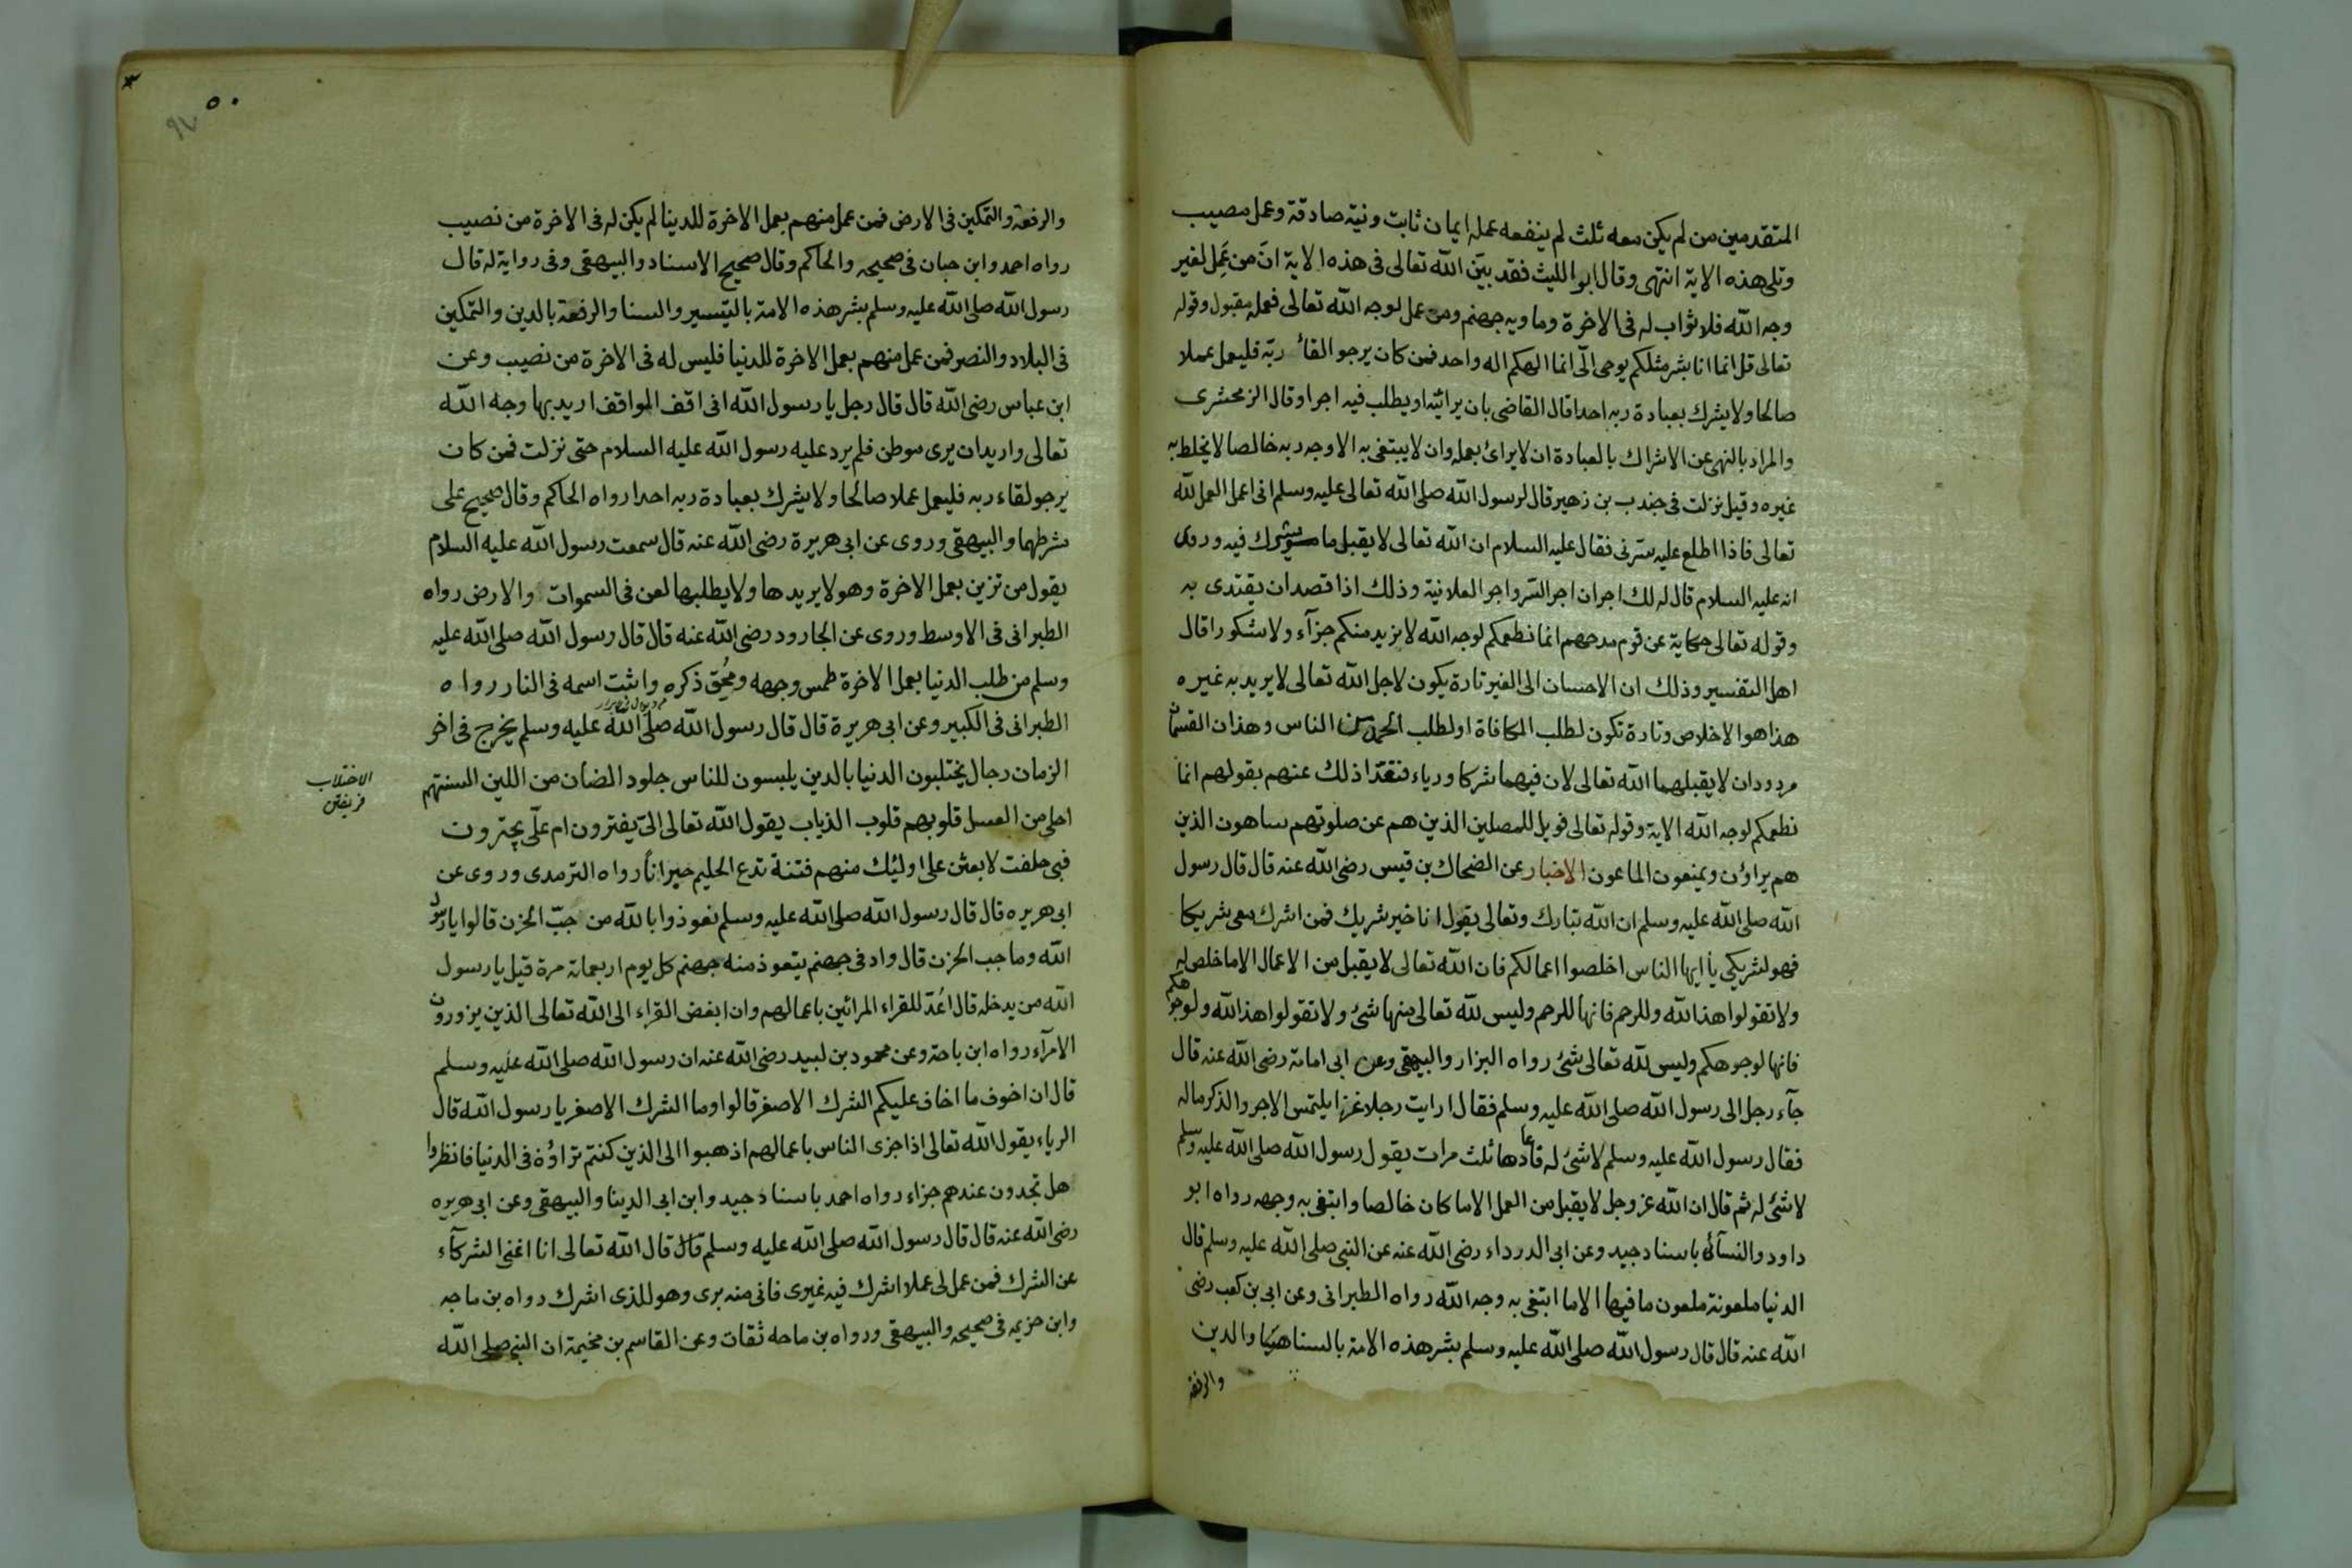 المتقدمين من لم يكن معه ثلث لم ينفعه عمله ايمان ثابت ونية صادقة وعمل مصيب
وتلى هذه الاية انتهى وقال ابو الليث فقد بيّن الله تعالى فى هذه الاية انّ من عَمِل لغير
وجه الله فلا ثواب له فى الاخرة وماويه جهنم ومن عمل لوجه الله تعالى فعمله مقبول وقوله
تعالى قل انما انا بشر مثلكم يوحى الىّ انما الهكم اله واحد فمن كان يرجو القاء ربّه فليعمل عملا
صالحا ولا يشرك بعبادة ربه احدا قال القاضى بان يرائيه او يطلب فيه اجرا وقال الزمحشرى
والمراد بالنهى عن الاشراك بالعبادة ان لا يرائ بعمله وان لا يبتغى به الا وجه ربه خالصا لا يخلط به
غيره وقيل نزلت فى جندب بن زهير قال لرسول الله صلى الله تعالى عليه وسلم انى اعمل العمل لله
تعالى فاذا اطلع عليه سرنى فقال عليه السلام ان الله تعالى لا يقبل ما شورك فيه وروى
انه عليه السلام قال له لك اجران اجر السّر واجر العلانية وذلك اذا قصد ان يقتدى به
وقوله تعالى حكاية عن قوم مدحهم انما نطعمكم لوجه الله لا نريد منكم جزآء ولا شكورا قال
اهل التفسير وذلك ان الاحسان الى الغير تارة يكون لاجل الله تعالى لا يريد به غيره
هذا هو الاخلاص وتارة تكون لطلب المكافاة او لطلب الحمد من الناس وهذان القسمان
مردودان لا يقبلهما الله تعالى لان فيهما شركا ورياء فنفّذا ذلك عنهم بقولهم انما
نطعمكم لوجه الله الاية وقوله تعالى فويل للمصلين الذين هم عن صلوتهم ساهون الذين
هم يراؤن ويمنعون الماعون الاخبار عن الضحاك بن قيس رضى الله عنه قال قال رسول
الله صلى الله عليه وسلم ان الله تبارك وتعالى يقول انا خير شريك فمن اشرك معى شريكا
فهو لشريكى يأ ايها الناس اخلصوا اعمالكم فان الله تعالى لا يقبل من الاعمال الا ما خلص له
ولا تقولوا هذا لله وللرحم فانها للرحم وليس لله تعالى منها شئ ولا تقولوا هذا لله ولوجوهكم
فانها لوجوهكم وليس لله تعالى شئ رواه البزار والبيهقى وعن ابى امامة رضى الله عنه قال
جآء رجل الى رسول الله صلى الله عليه وسلم فقال ارايت رجلا غزا يلتمس الاجر والذكر ماله
فقال رسول الله عليه وسلم لا شئ له فاعادها ثلث مرات يقول رسول الله صلى الله عليه وسلم
لا شئ له ثم قال ان الله عز وجل لا يقبل من العمل الا ما كان خالصا وابتغى به وجهه رواه ابو
داود والنسآئى باسناد جيد وعن ابى الدرداء رضى الله عنه عن النبى صلى الله عليه وسلم قال
الدنيا ملعونة ملعون ما فيها الا ما ابتغى به وجه الله رواه الطبرانى وعن ابى بن كعب رضى
الله عنه قال قال رسول الله صلى الله عليه وسلم بشر هذه الامة بالسنا والدين
والرفعة
٥٠
والرفعة والتمكين فى الارض فمن عمل منهم بعمل الاخرة للدينا لم يكن له فى الاخرة من نصيب
رواه احمد وابن حبان فى صحيحه والحاكم وقال صحيح الاسناد والبيهقى وفى رواية له قال
رسول الله صلى الله عليه وسلم بشر هذه الامة بالتيسير والسنا والرفعة بالدين والتمكين
فى البلاد والنصر فمن عمل منهم بعمل الاخرة للدنيا فليس له فى الاخرة من نصيب وعن
ابن عباس رضى الله قال قال رجل يا رسول الله انى اقف المواقف اريد بها وجه الله
تعالى واريد ان يرى موطن فلم يرد عليه رسول الله عليه السلام حتى نزلت فمن كان
يرجو لقاء ربه فليعمل عملا صالحا ولا يشرك بعبادة ربه احدا رواه الحاكم وقال صحيح على
شرطهما والبيهقى وروى عن ابى هريرة رضى الله عنه قال سمعت رسول الله عليه السلام
يقول من تزين بعمل الاخرة وهو لا يريدها ولا يطلبها لعن فى السموات والارض رواه
الطبرانى فى الاوسط وروى عن الجارود رضى الله عنه قال قال رسول الله صلى الله عليه
وسلم من طلب الدنيا بعمل الاخرة طمس وجهه ومُحِق ذكره واثبت اسمه فى النار رواه
الطبرانى فى الكبير وعن ابى هريرة قال قال رسول الله صلى الله عليه وسلم يخرج فى اخر
الزمان رجال يختلبون الدنيا بالدين يلبسون للناس جلود الضان من اللين السنتهم
الاختلاب
فريفتن
احلى من العسل قلوبهم قلوب الذياب يقول الله تعالى الىّ يفترون ام علّى يجترون
فبى حلفت لابعثن على اولئك منهم فتنة تدع الحليم حيرانا رواه الترمدى وروى عن
ابى هريره قال قال رسول الله صلى الله عليه وسلم نعوذوا بالله من جبّ الحزن قالوا يا رسول
الله وما جب الحزن قال واد فى جهنم يتعوذ منه جهنم كل يوم اربعماية مرة قيل يا رسول
الله من يدخله قال اُعدّ للقراء المرائين باعمالهم وان ابغض القراء الى الله تعالى الذين يزورون
الامرآء رواه ابن باحة وعن محمود بن لبيد رضى الله عنه ان رسول الله صلى الله عليه وسلم
قال ان اخوف ما اخاف عليكم الشرك الاصغر قالوا وما الشرك الاصغر يا رسول الله قال
الرياء يقول الله تعالى اذا جزى الناس باعمالهم اذهبوا الى الذين كنتم تراؤن فى الدنيا فانظروا
هل تجدون عندهم جزاء رواه احمد باسناد جيد وابن ابى الدينا والبيهقى وعن ابى هريره
رضى الله عنه قال قال رسول الله صلى الله عليه وسلم قال قال الله تعالى انا اغنى الشركآء
عن الشرك فمن عمل لى عملا اشرك فيه غيرى فانى منه برى وهو للذى اشرك رواه بن ماجه
وابن حزيمه فى صحيحه والبيهقى ورواه بن ماجه ثقات وعن القاسم بن مخيمة ان النبى صلى الله